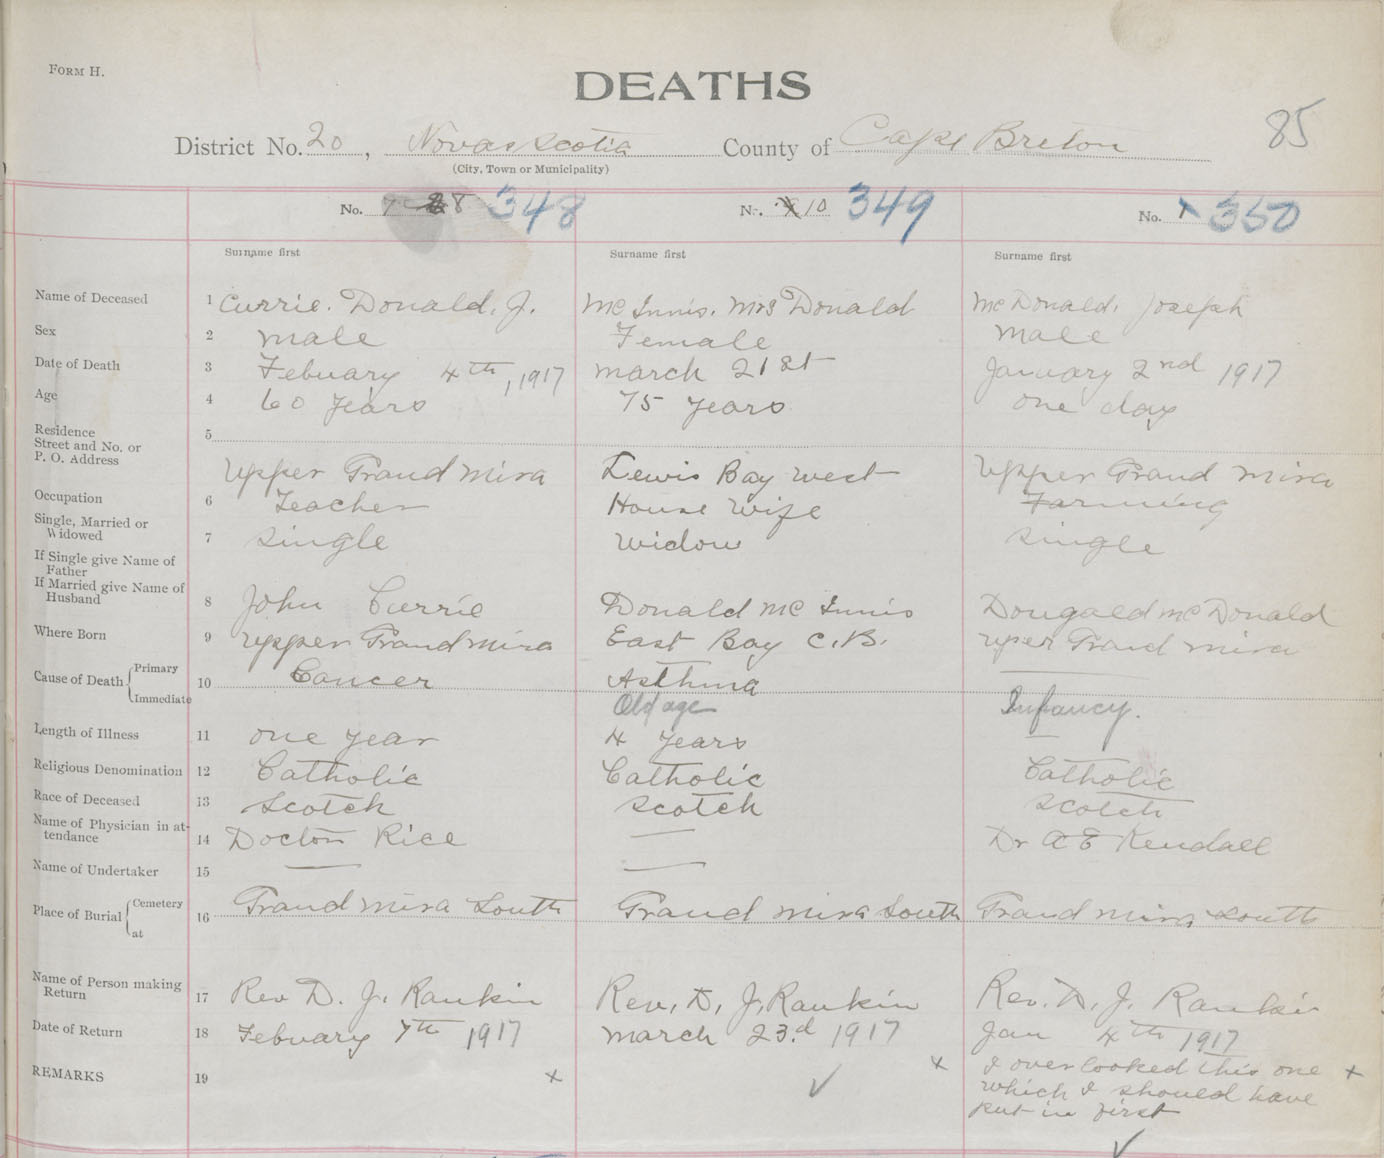 FORM H.
DEATHS
85
District No. 20, Nova Scotia County of Cape Breton
(City, Town or Municipality)
No. 7 8 348 No. 10 349 No. 1 350
Surname first Surname first Surname first
Name of Deceased 1 Currie. Donald. J. Mc Innis. Mrs Donald Mc Donald. Joseph
Sex 2 male Female male
Date of Death 3 Febuary 4th, 1917 march 21st January 2nd 1917
Age 4 60 years 75 years one day
Residence 5
Street and No. or
P. O. Address
Upper Grand Mira Lewis Bay west Upper Grand Mira
Occupation 6 Teacher House Wife Farming
Single, Married or
Widowed 7 single widow single
If Single give Name of
Father
If Married give Name of
Husband 8 John Currie Donald Mc Innis Dougald Mc Donald
Where Born 9 Upper Grand Mira East Bay C.B. uper Grand Mira
Cause of Death Primary 10 Cancer Asthma —
Immediate Old age Infancy.
Length of Illness 11 one year 4 years —
Religious Denomination 12 Catholic Catholic Catholic
Race of Deceased 13 Scotch Scotch Scotch
Name of Physician in at-
tendance 14 Doctor Rice — Dr A E Kendall
Name of Undertaker 15 — —
Place of Burial Cemetery 16 Grand Mira South Grand Mira South Grand Mira South
at
Name of Person making
Return 17 Rev D. J. Rankin Rev. D. J. Rankin Rev. D. J. Rankin
Date of Return 18 Febuary 7th 1917 march 23.d 1917 Jan 4th 1917
REMARKS 19 x x I over looked this one x
which I should have
put in first